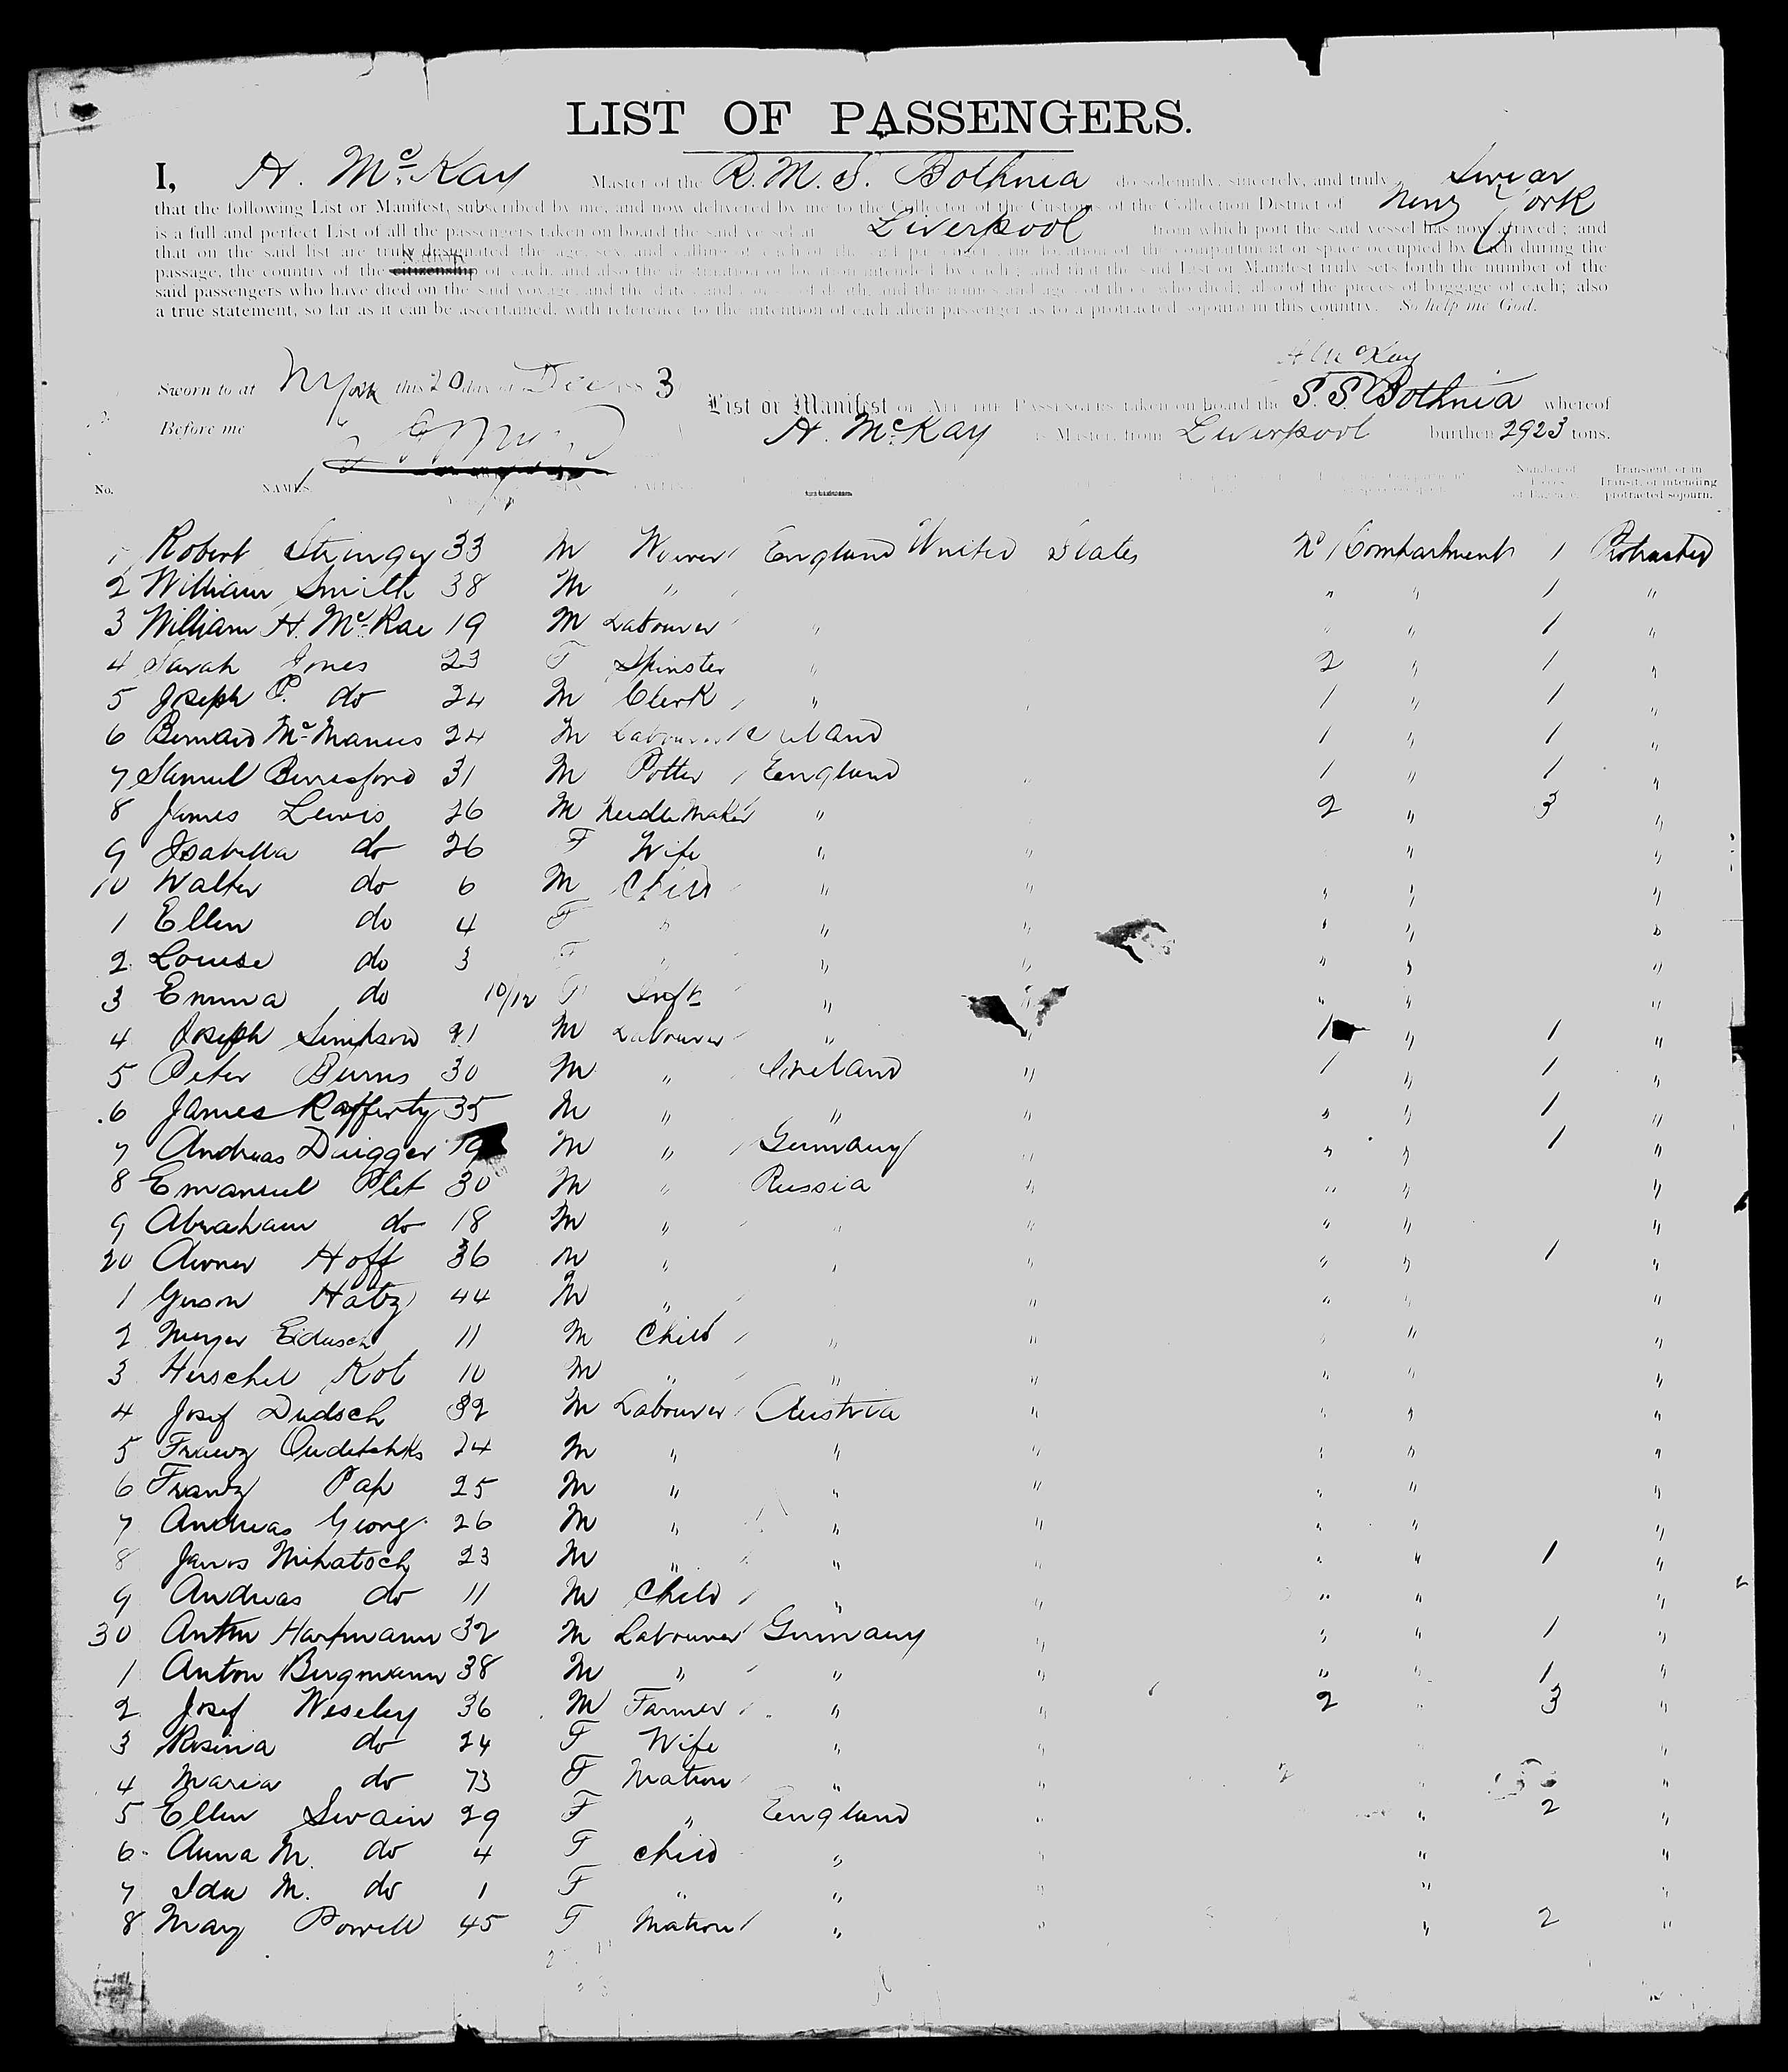 LIST OF PASSENGERS.
I, H. McKay Master of the R.M.S. Bothnia do solemnly, sincerely, and truly Swear
that the following List or Manifest, subscribed by me, and now delivered by me to the Collector of the Customs of the Collection District of New York
is a full and perfect List of all the passengers taken on board the said vessel at Liverpool from which port the said vessel has now arrived; and
that on the said list are truly designated the age, sex, and calling of each of the said passengers, the location of the compartment or space occupied by each during the
passage, the country of the citizenship of each, and also the destination or location intended by each; and that the said List or Manifest truly sets forth the number of the
said passengers who have died on the said voyage, and the dates and causes of death, and the names and ages of those who died; also of the pieces of baggage of each; also
a true statement, so far as it can be ascertained, with reference to the intention of each alien passenger as to a protracted sojourn in this country. So help me God.
H McKay
Sworn to at N York this 20 day of Dec 188 3
List or Manifest OF ALL THE PASSENGERS taken on board the S.S. Bothnia whereof
Before me
H. McKay is Master, from Liverpool burthen 2923 tons.
No. NAMES. Number of Pieces of Baggage. Transient, or in Transit, or intending protracted sojourn.
1 Robert Stringer 33 M Weaver England United States No 1 Compartment 1 Protracted
2 William Smith 38 M " " " 1 "
3 William H. McRae 19 M Labourer " " " 1 "
4 Sarah Jones 23 F Spinster " 2 " 1 "
5 Joseph P. do 24 M Clerk " 1 " 1 "
6 Bernard McManus 24 M Labourer Ireland 1 " 1 "
7 Samuel Berresford 31 M Potter England " 1 " 1 "
8 James Lewis 26 M Needle Maker " 2 " 3 "
9 Isabella do 26 F Wife " " " "
10 Walter do 6 M Child " " " " "
1 Ellen do 4 F " " " " " "
2 Louise do 3 F " " " " " "
3 Emma do 10/12 F Inft " " " " "
4 Joseph Simpson 21 M Labourer " " 1 " 1 "
5 Peter Burns 30 M " Ireland " 1 " 1 "
6 James Rafferty 35 M " " " " " 1 "
7 Andreas Duigger 19 M " Germany " " " 1 "
8 Emanuel Plet 30 M " Russia " " " "
9 Abraham do 18 M " " " " " "
20 Hoff 36 M " " " " " 1 "
1 Hatz 44 M " " " " "
2 Meyer Eidusch 11 M Child " " " "
3 Herschel Kot 10 M " " " " " "
4 Josef Dudsch 32 M Labourer Austria " " " "
5 Franz 24 M " " " " " "
6 Frantz Pap 25 M " " " " " "
7 Andreas Georg 26 M " " " " " "
8 Janos Mihatsch 23 M " " " " " 1 "
9 Andreas do 11 M Child " " " " "
30 Anton Hartmann 32 M Labourer Germany " " " 1 "
1 Anton Bergmann 38 M " " " " " 1 "
2 Josef Weseley 36 M Farmer " " 2 " 3 "
3 Rosina do 24 F Wife " " " "
4 Maria do 73 F Matron " " " "
5 Ellen Swain 29 F " England " " 2 "
6 Anna M. do 4 F Child " " " "
7 Ida M. do 1 F " " " " "
8 Mary Powell 45 F Matron " " " 2 "